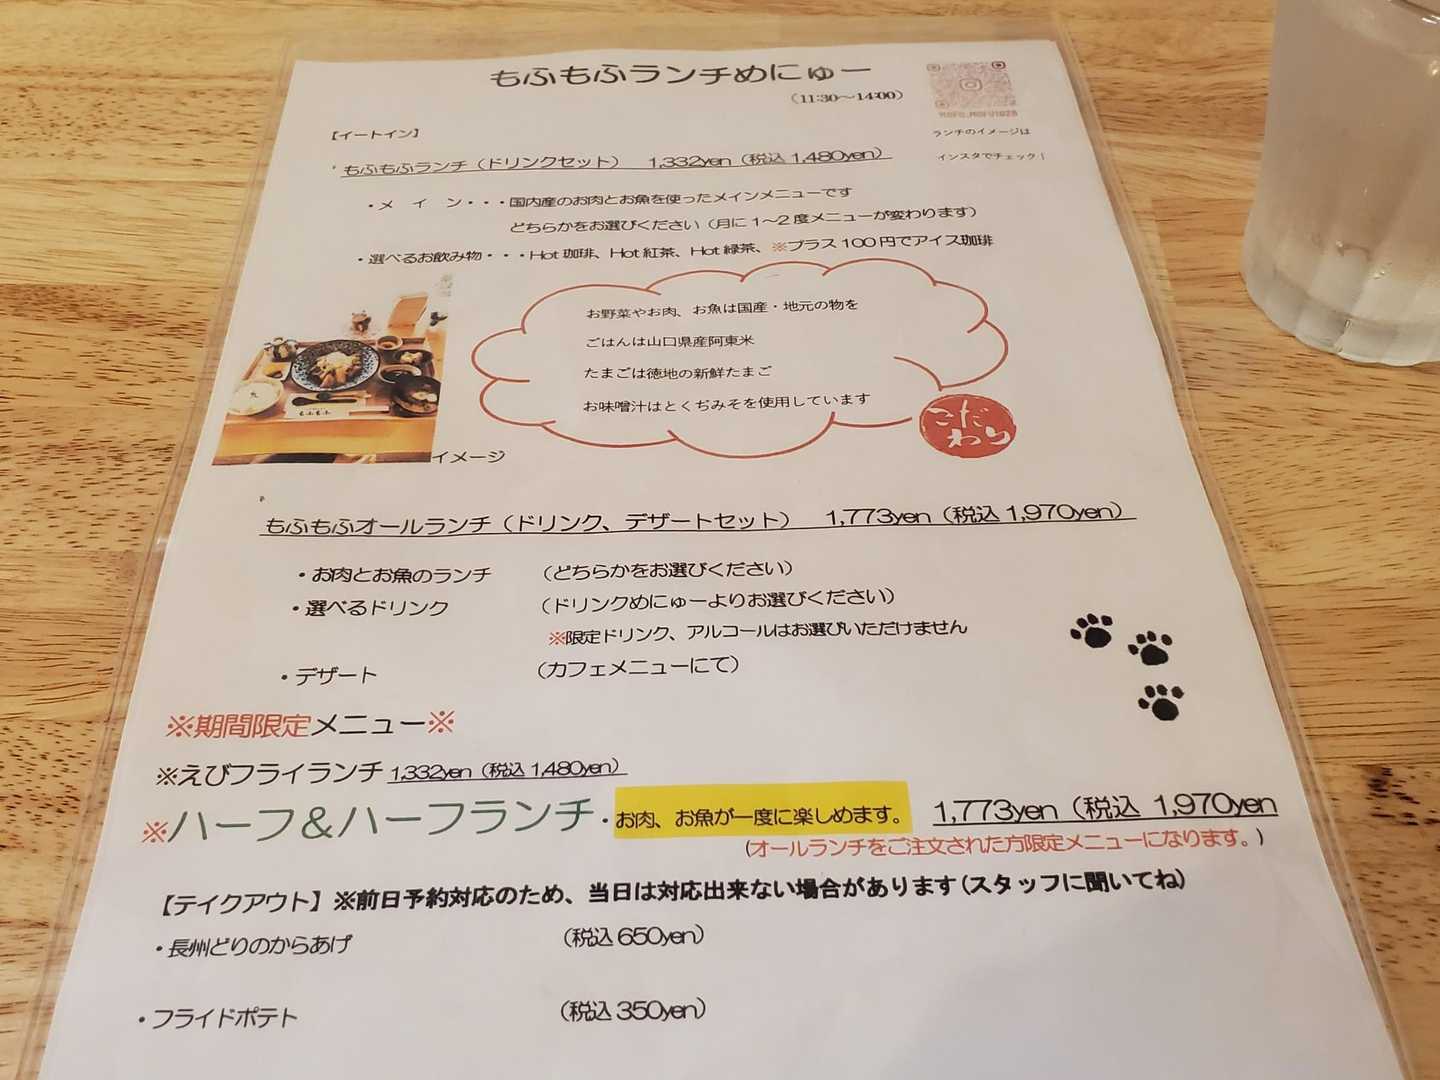 もふもふランチめにゅー
(11:30～14:00)
MOFU_MOFU1028
ランチのイメージは
インスタでチェック！
【イートイン】
もふもふランチ（ドリンクセット） 1,332yen（税込1,480yen）
・メ イ ン・・・国内産のお肉とお魚を使ったメインメニューです
どちらかをお選びください（月に1～2度メニューが変わります）
・選べるお飲み物・・・Hot珈琲、Hot紅茶、Hot緑茶、※プラス100円でアイス珈琲
お野菜やお肉、お魚は国産・地元の物を
ごはんは山口県産阿東米
たまごは徳地の新鮮たまご
お味噌汁はとくぢみそを使用しています
こだわり
もふもふ
イメージ
もふもふオールランチ（ドリンク、デザートセット） 1,773yen（税込1,970yen）
・お肉とお魚のランチ （どちらかをお選びください）
・選べるドリンク （ドリンクめにゅーよりお選びください）
※限定ドリンク、アルコールはお選びいただけません
・デザート （カフェメニューにて）
※期間限定メニュー※
※えびフライランチ 1,332yen（税込1,480yen）
※ハーフ＆ハーフランチ・お肉、お魚が一度に楽しめます。 1,773yen（税込 1,970yen
（オールランチをご注文された方限定メニューになります。）
【テイクアウト】※前日予約対応のため、当日は対応出来ない場合があります(スタッフに聞いてね)
・長州どりのからあげ （税込650yen）
・フライドポテト （税込350yen）